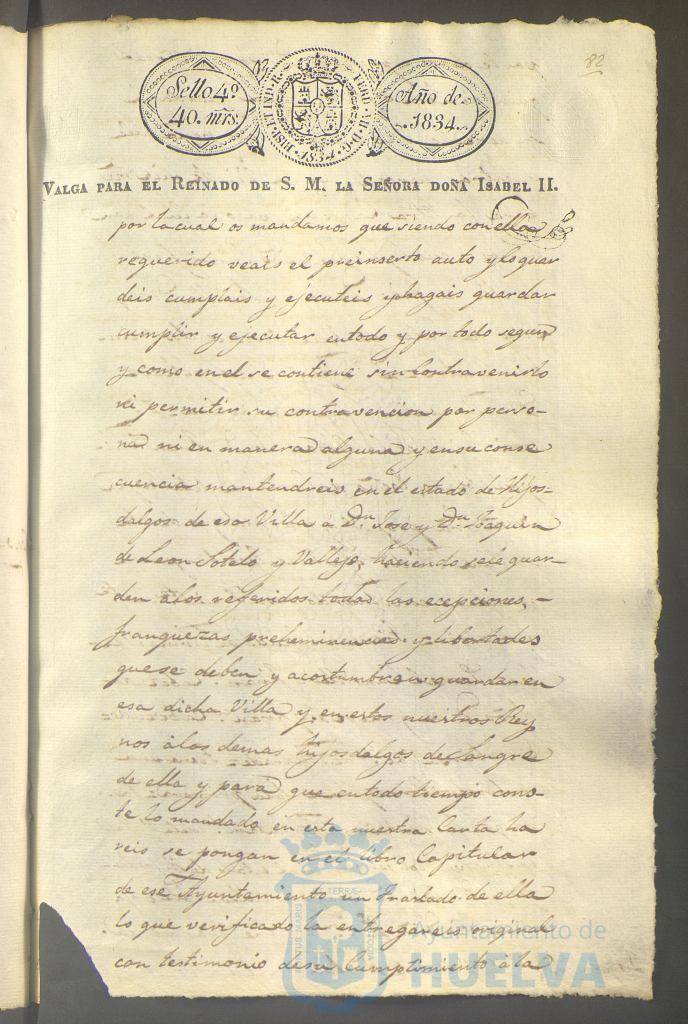 82
Sello 4º
40. mrs.
HISP. ET IND. R. FERD. VII. D. G.
1834
Año de
1834.
VALGA PARA EL REINADO DE S. M. LA SEÑORA DOÑA ISABEL II.
por la cual os mandamos que siendo con ella
requerido veais el preinserto auto y lo guar
deis cumplais y ejecuteis y hagais guardar
cumplir y ejecutar en todo y por todo segun
y como en el se contiene sin contravenirlo
ni permitir su contravencion por perso-
na ni en manera alguna y en su conse
cuencia mantendreis en el estado de Hijos-
dalgos de esa Villa à Dn. José y Dn. Joaquin
de Leon Sotelo y Vallejo, haciendo sele guar-
den à los referidos todas las ecepciones,-
franquezas preheminencias y libertades
que se deben y acostumbran guardar en
esa dicha Villa y en estos nuestros Rey
nos à los demas hijosdalgos de Sangre
de ella y para que en todo tiempo cons-
te lo mandado en esta nuestra Carta ha
reis se pongan en el libro Capitular
de ese Ayuntamiento un Traslado de ella
lo que verificado la entregareis original
con testimonio de su Cumplimiento à la
Ayuntamiento de
HUELVA